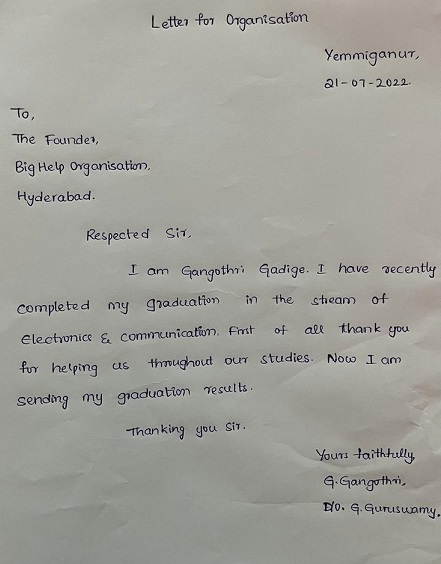 Letter for Organisation
Yemmiganur,
21-07-2022.
To,
The Founder,
Big Help Organisation,
Hyderabad.
Respected Sir,
I am Gangothri Gadige. I have recently
completed my graduation in the stream of
Electronics & communication. First of all thank you
for helping us throughout our studies. Now I am
sending my graduation results.
Thanking you Sir.
Yours faithfully
G. Gangothri,
D/o. G. Guruswamy.